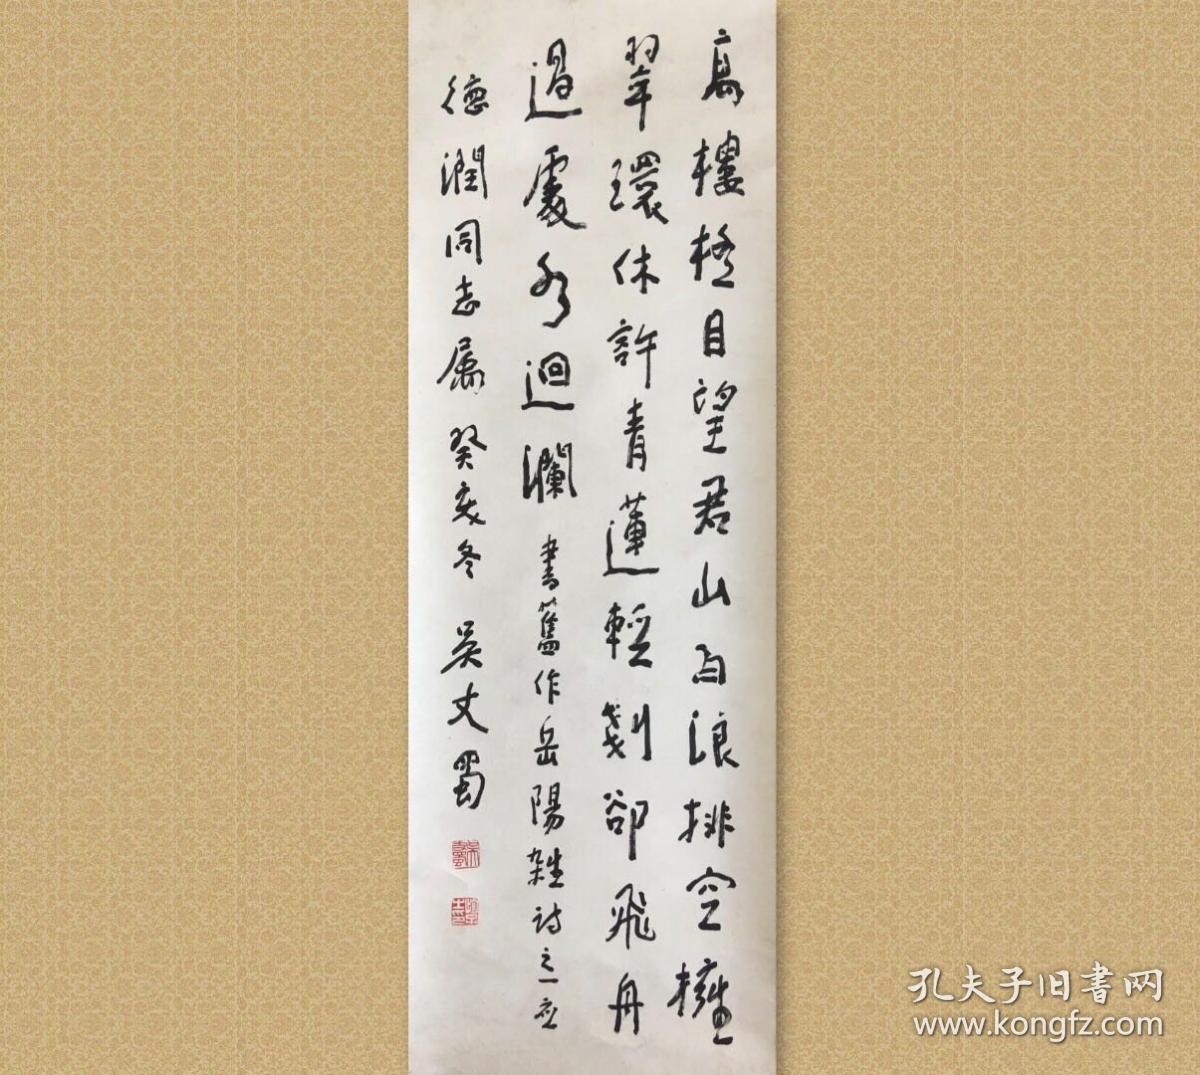 高樓極目望君山白浪排空擁
翠環休許青蓮輕剗卻飛舟
過處有迴瀾 書舊作岳陽雜诗之一应
德潤同志屬 癸亥冬 吳丈蜀
孔夫子旧书网
www.kongfz.com